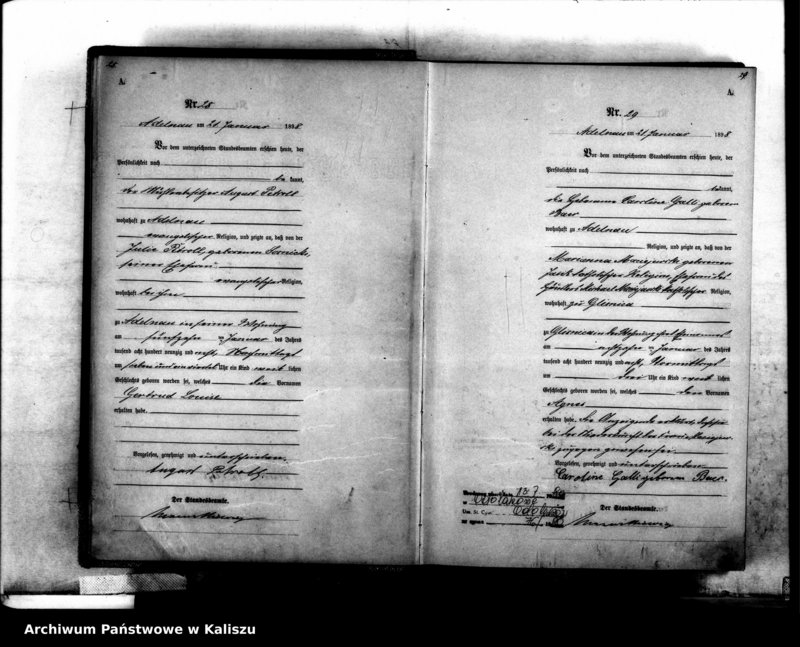 28
A.
Nr. 28
Adelnau am 21. Januar 1898
Vor dem unterzeichneten Standesbeamten erschien heute, der
Persönlichkeit nach
be kannt,
August Petroll
wohnhaft zu Adelnau
evangelischer Religion, und zeigte an, daß von der
Julie Petroll, geborenen
seiner Ehefrau
evangelischer Religion,
wohnhaft bei ihm
zu Adelnau in seiner Wohnung
am fünfzehn ten Januar des Jahres
tausend acht hundert neunzig und acht, Vormittags
um sieben und Uhr ein Kind weib lichen
Geschlechts geboren worden sei, welches die Vornamen
Gertrud Louise
erhalten habe.
Vorgelesen, genehmigt und unterschrieben.
August
Der Standesbeamte.
29
A.
Nr. 29
Adelnau am 21. Januar 1898
Vor dem unterzeichneten Standesbeamten erschien heute, der
Persönlichkeit nach
bekannt,
die Hebamme Caroline Galli geborene
Baer
wohnhaft zu Adelnau
Religion, und zeigte an, daß von der
Marianna geborenen
katholischer Religion, Ehefrau des
Michael katholischer Religion,
wohnhaft zu Glisnica
zu Glisnica in der Wohnung ihres Ehemannes
am achtzehn ten Januar des Jahres
tausend acht hundert neunzig und acht, Vormittags
um drei Uhr ein Kind weib lichen
Geschlechts geboren worden sei, welches den Vornamen
Agnes
erhalten habe. Die Anzeigende erklärte, daß sie
bei der Niederkunft der
zugegen gewesen sei.
Vorgelesen, genehmigt und unterschrieben
Caroline Galli geborene Baer.
Der Standesbeamte.
Archiwum Państwowe w Kaliszu